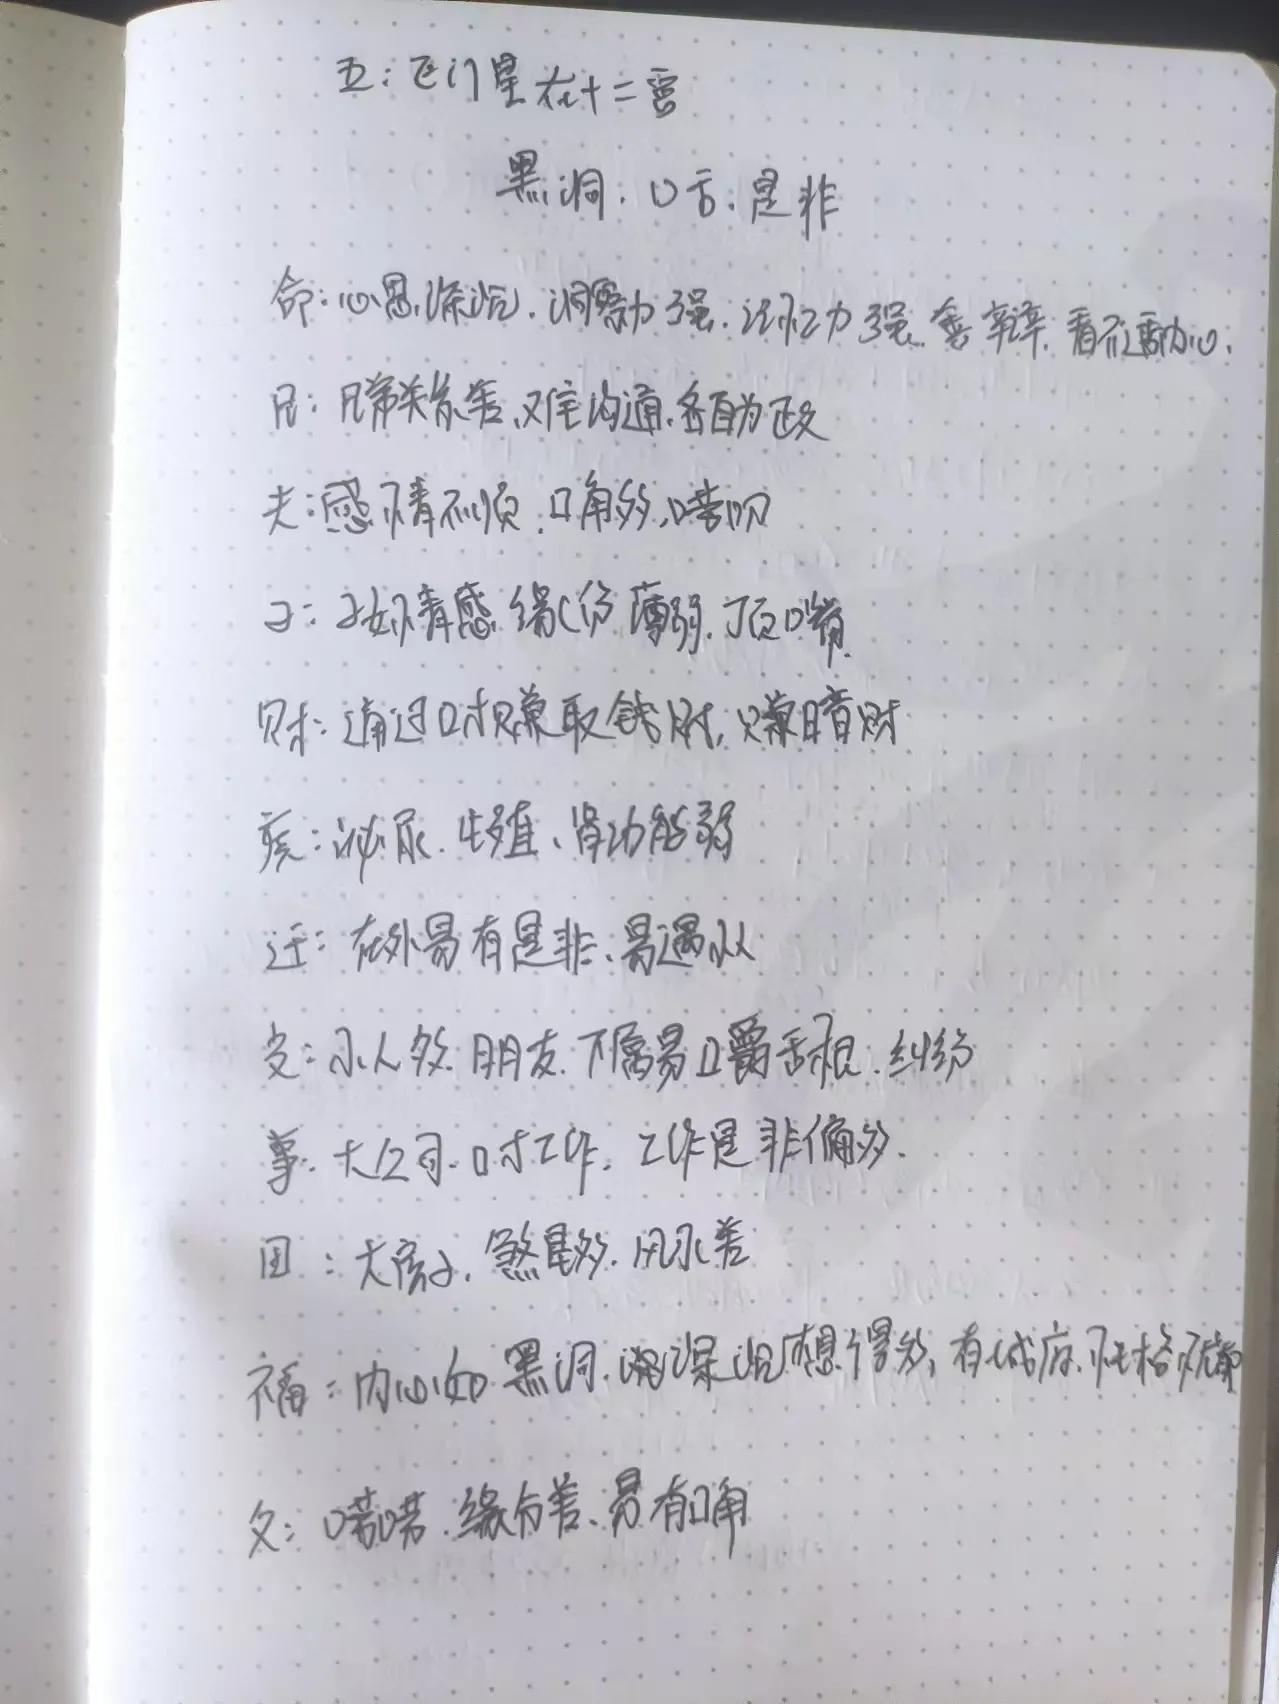 五：巨门星在十二宫
黑洞．口舌．是非
命：心思深沉．洞察力强．记忆力强．善辩．看不透内心．
兄：兄弟关系差、难沟通．各自为政
夫：感情不顺．口角多，唠叨
子：子女情感缘份薄弱．顶口嘴．
财：通过口才赚取钱财，赚暗财
疾：泌尿．生殖、肾功能弱
迁：在外易有是非、易遇小人
交：小人多．朋友．下属易口嚼舌根．纠纷
事．大公司．口才工作．工作是非偏多．
田：大房子．煞星多．风水差
福：内心如黑洞．深沉想得多，有城府．性格
父：唠唠．缘分差、易有口角